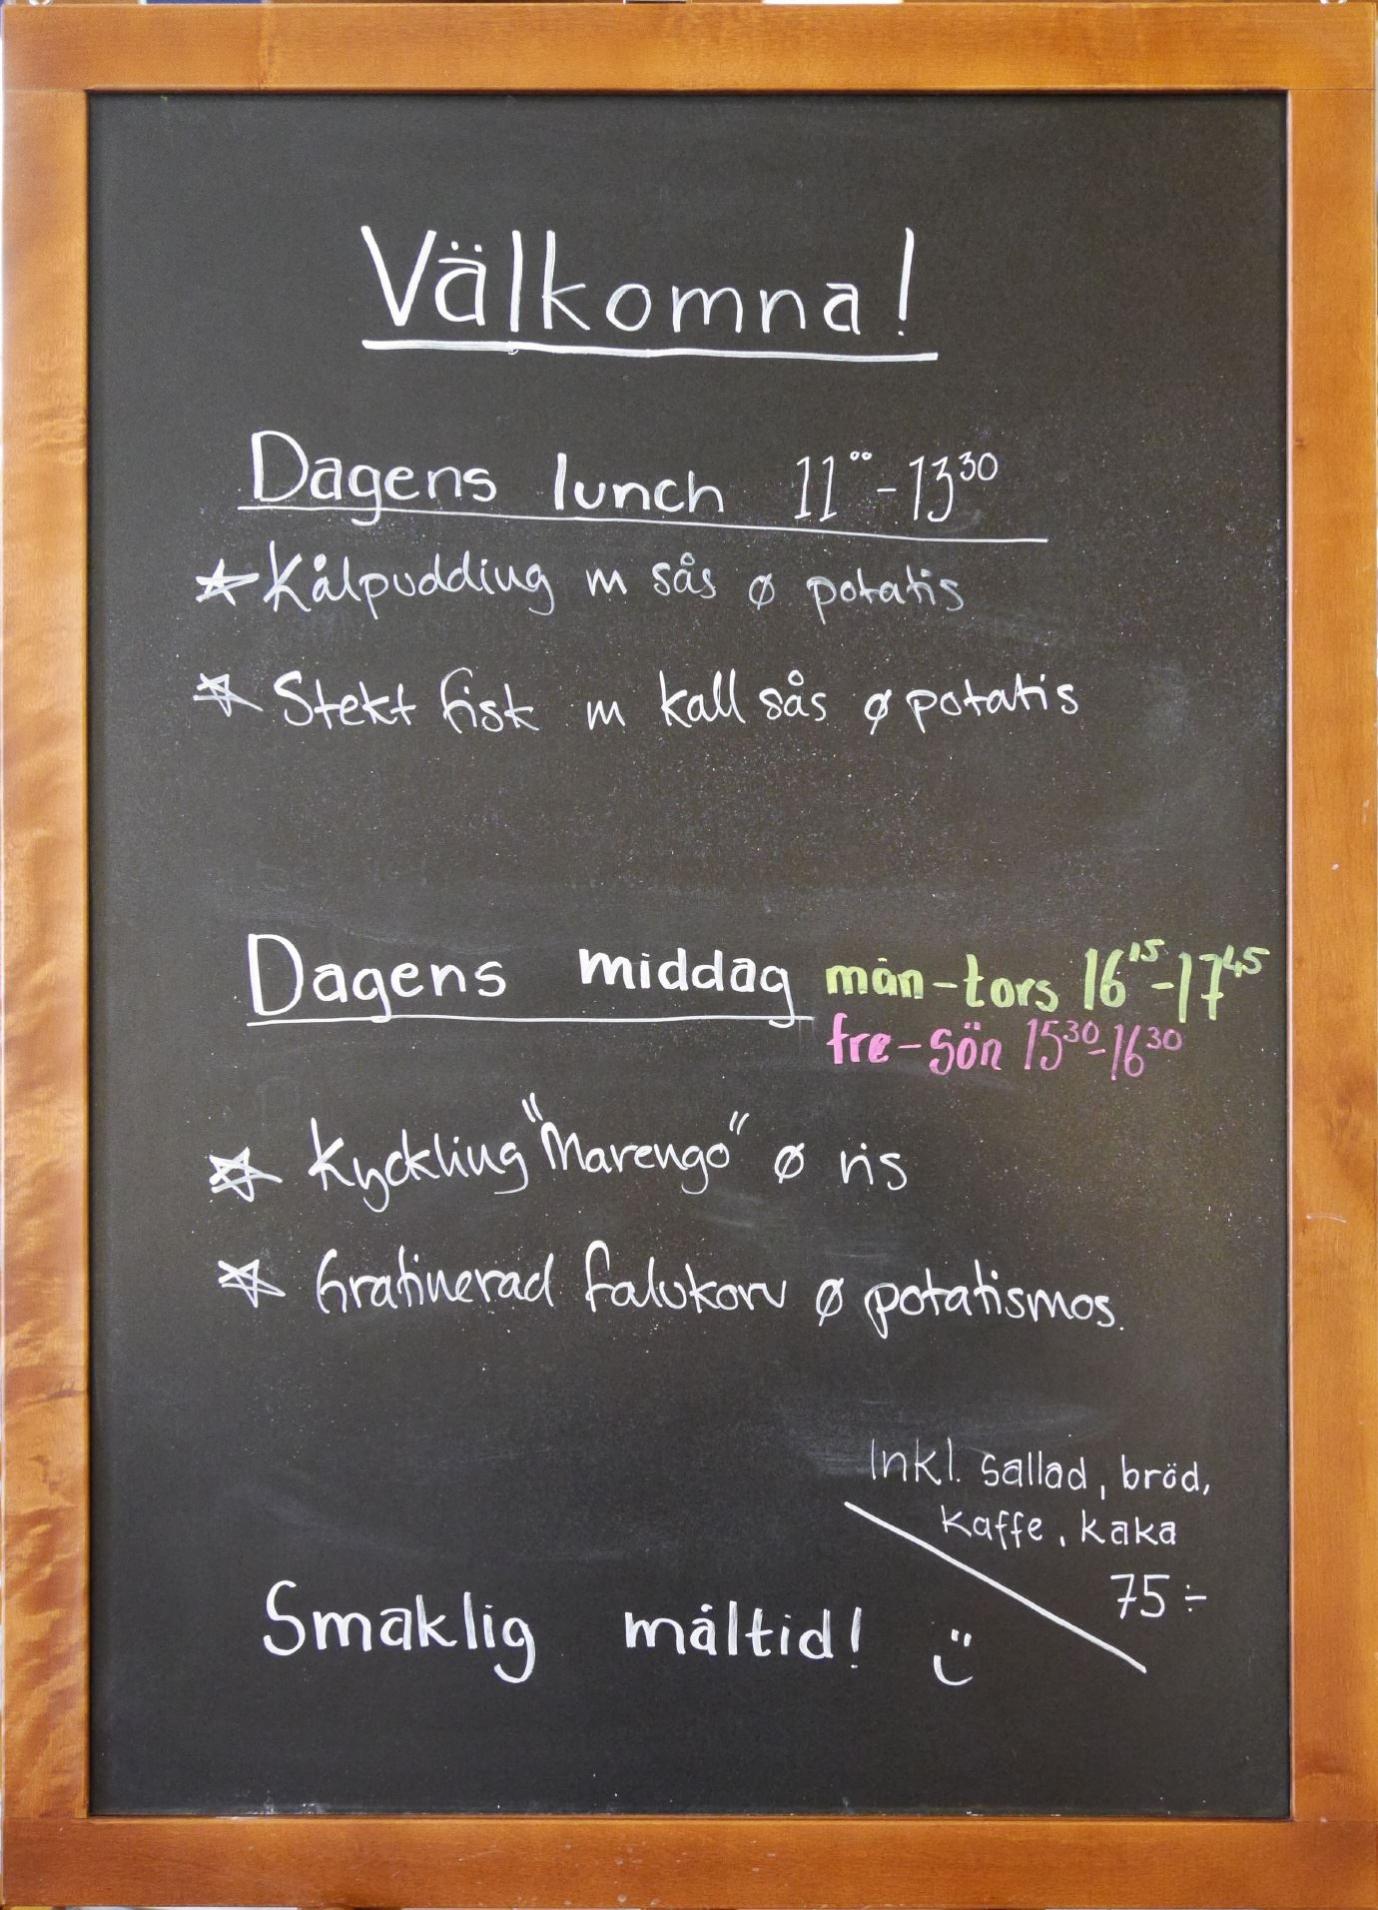 Välkomna!
Dagens lunch 11⁰⁰-13³⁰
☆ Kålpudding m sås ø potatis
☆ Stekt fisk m kall sås ø potatis
Dagens middag mån-tors 16¹⁵-17⁴⁵
fre-sön 15³⁰-16³⁰
☆ Kyckling "Marengo" ø ris
☆ Gratinerad falukorv ø potatismos.
Inkl. sallad, bröd,
kaffe, kaka
75:-
Smaklig måltid! ü